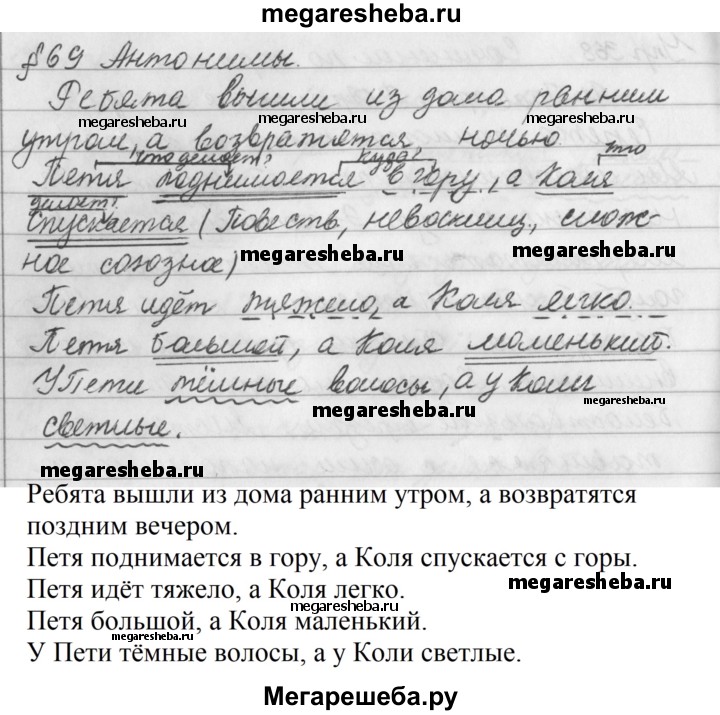 megaresheba.ru
§ 69 Антонимы.
Ребята вышли из дома ранним
megaresheba.ru
megaresheba.ru
утром, а возвратятся ночью.
что делает? куда? что
Петя поднимается в гору, а Коля
делает?
спускается (Повеств, невосклиц, слож-
megaresheba.ru
megaresheba.ru
ное союзное)
Петя идёт тяжело, а Коля легко.
Петя большой, а Коля маленький.
У Пети тёмные волосы, а у Коли
megaresheba.ru
megaresheba.ru
светлые.
megaresheba.ru
Ребята вышли из дома ранним утром, а возвратятся
поздним вечером.
Петя поднимается в гору, а Коля спускается с горы.
Петя идёт тяжело, а Коля легко.
megaresheba.ru
megaresheba.ru
Петя большой, а Коля маленький.
megaresheba.ru
У Пети тёмные волосы, а у Коли светлые.
Мегарешеба.ру